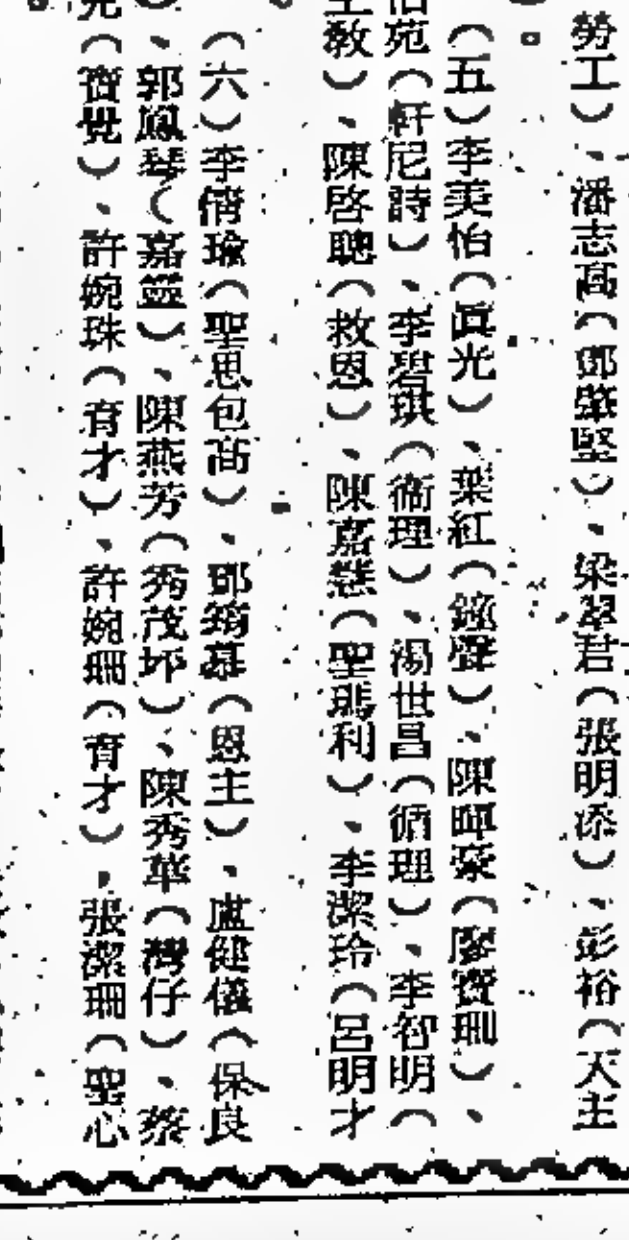 勞工）、潘志高（鄧肇堅）、梁翠君（張明添）、彭裕（天主
。
（五）李美怡（眞光）、葉紅（鐘聲）、陳暉豪（廖寶珊）、
苑（軒尼詩）、李碧琪（衞理）、湯世昌（循理）、李智明（
敎）、陳啓聰（救恩）、陳嘉慧（聖瑪利）、李潔玲（呂明才
。
（六）李倩瑜（聖思包高）、鄧筠慕（恩主）、盧健儀（保良
）、郭鳳琴（嘉靈）、陳燕芳（秀茂坪）、陳秀華（灣仔）、蔡
（寶覺）、許婉珠（育才）、許婉珊（育才）、張潔珊（聖心
。